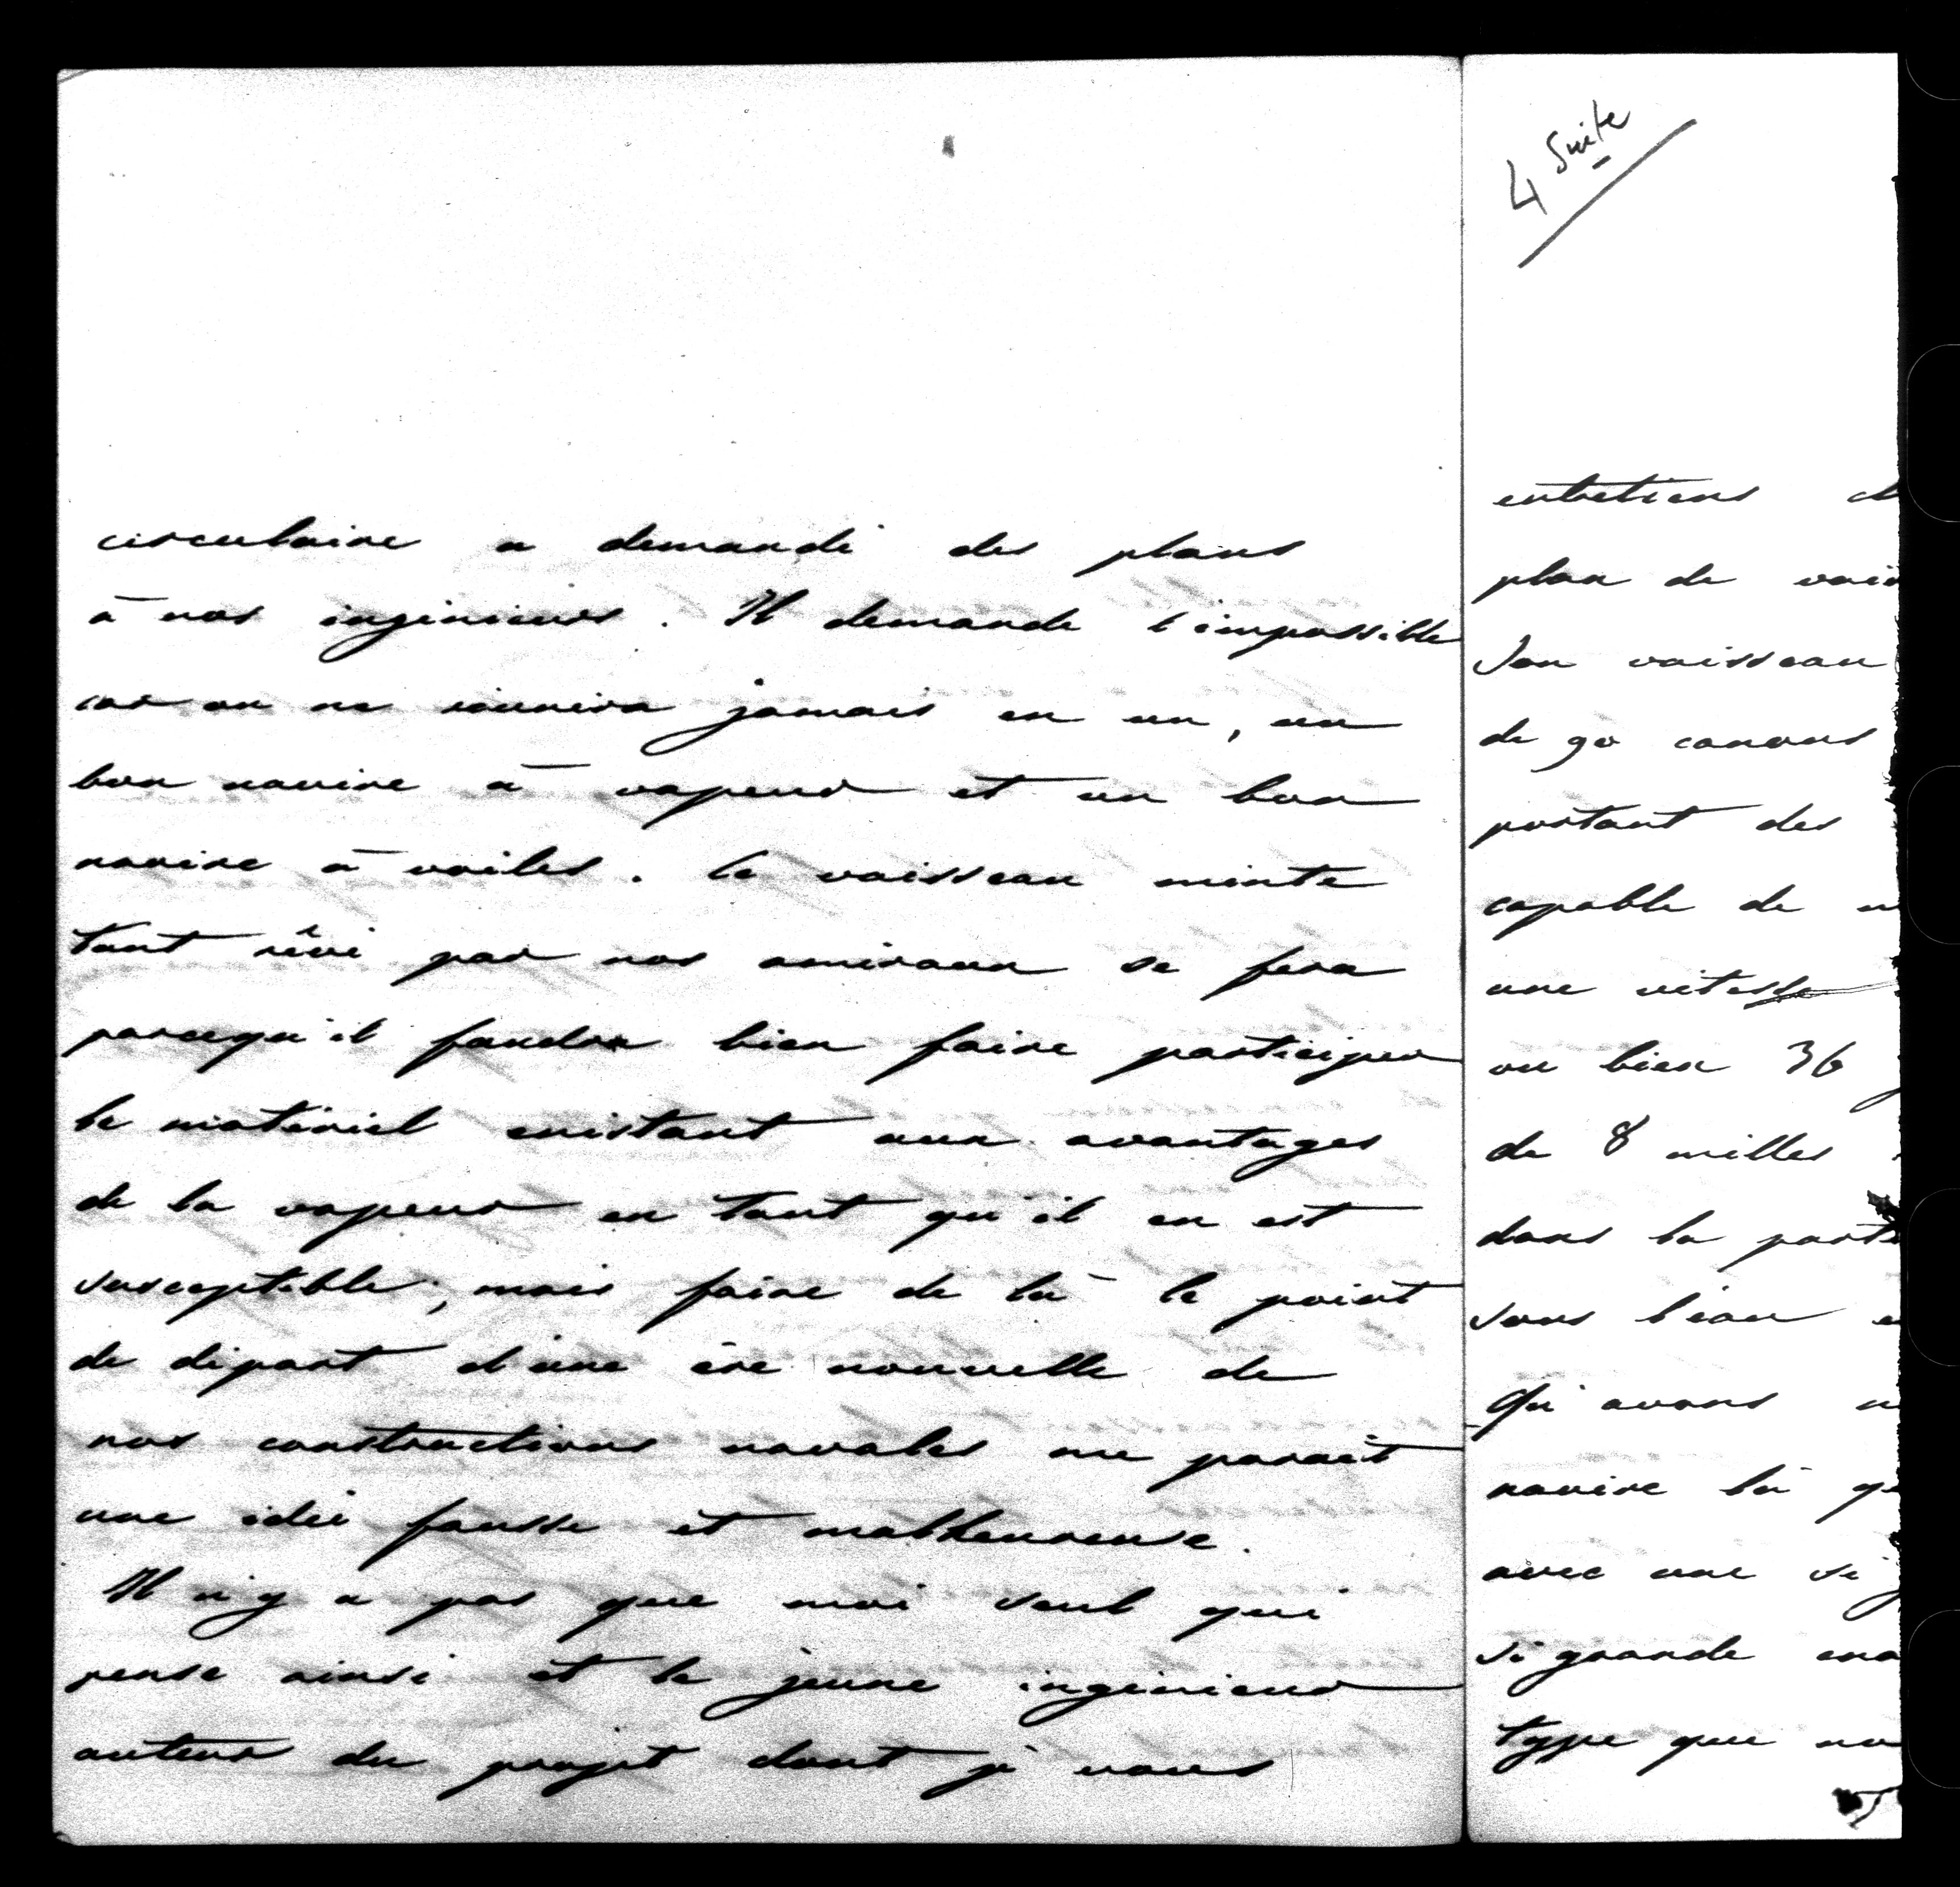 circulaire a demandé des plans
à nos ingénieurs. Il demande l'impossible
car on ne réunira jamais en un, un
bon navire à vapeur et un bon
navire à voiles. Le vaisseau mixte
tant rêvé par nos amiraux se fera
parcequ'il faudra bien faire participer
le matériel existant aux avantages
de la vapeur en tant qu'il en est
susceptible, mais faire de là le point
de départ d'une ère nouvelle de
nos constructions navales me parait
une idée fausse et malheureuse.
Il n'y a pas que moi seul qui
pense ainsi et le jeune ingénieur
auteur du projet dont je vous
4 Suite
entretiens
plan de
Son vaisseau
de 90 canons
portant des
capable de
une vitesse
ou bien 36
de 8 milles
dans la
sous l'eau
Qui avons
navire là
avec une si
si grande
type que